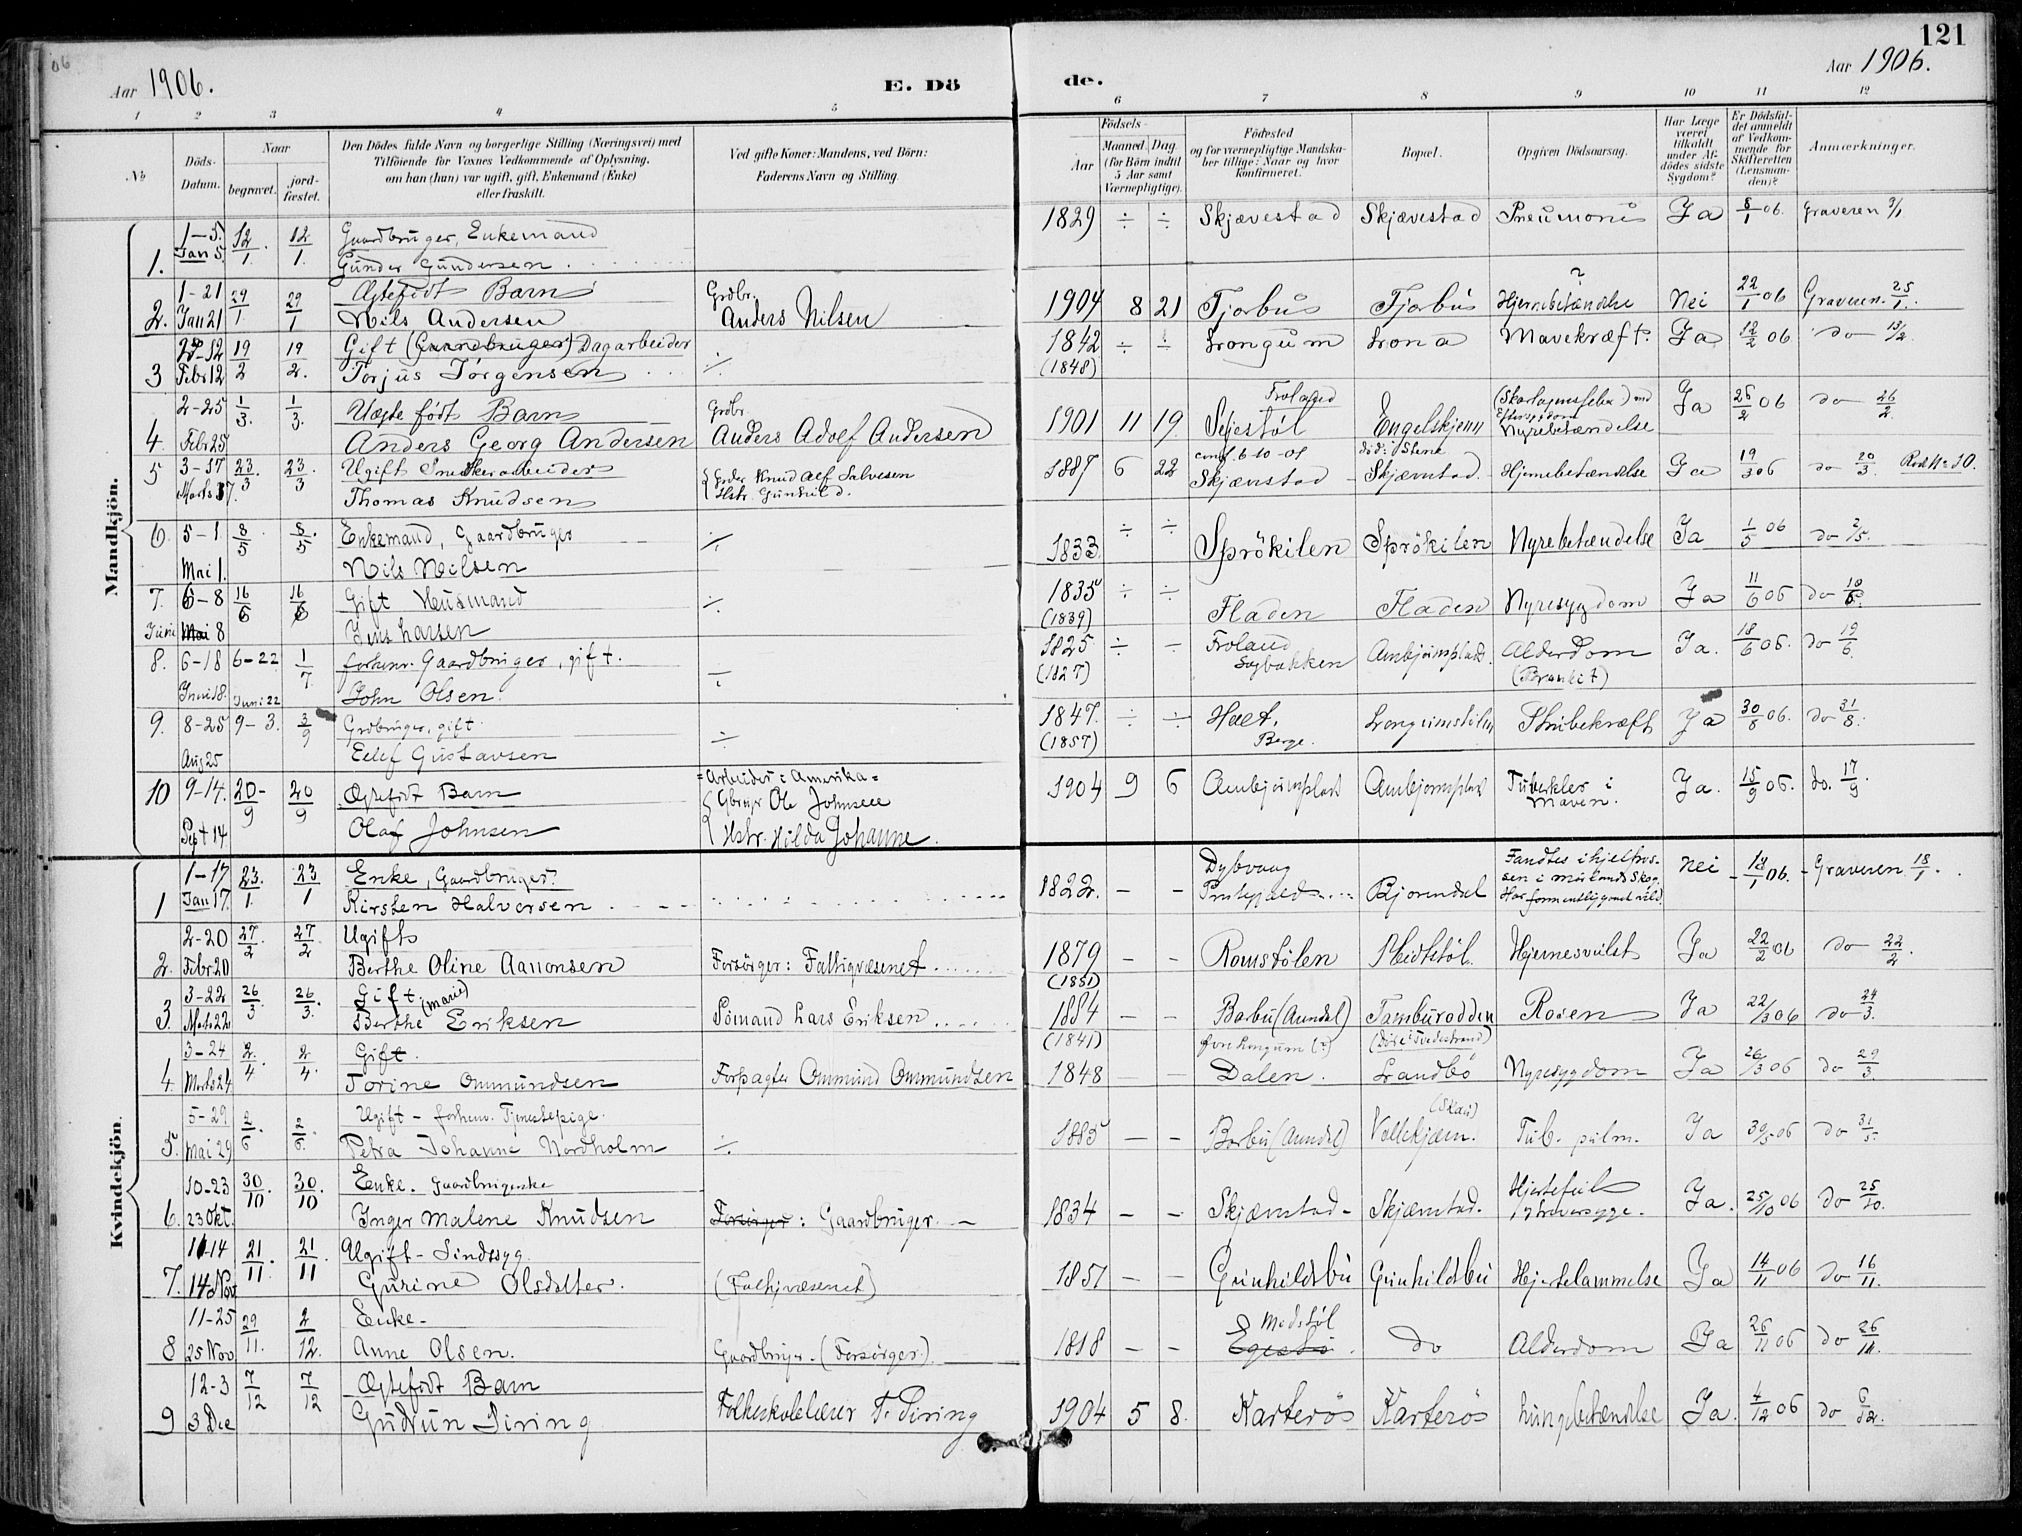 121
Aar 1906.
E. Dö
de.
Aar 1906.
1 2 3 4 5 6 7 8 9 10 11 12
No
Döds-Datum.
Naar
begravet.
jord-fæstet.
Den Dödes fulde Navn og borgerlige Stilling (Næringsvei) med
Tilföiende for Voxnes Vedkommende af Oplysning,
om han (hun) var ugift, gift, Enkemand (Enke)
eller fraskilt.
Ved gifte Koner: Mandens, ved Börn:
Faderens Navn og Stilling.
Födsels-
Aar
Maaned. Dag.
(for Börn indtil
5 Aar samt
Værnepligtige).
Födested
og for værnepligtige Mandska-
ber tillige: Naar og hvor
Konfirmeret.
Bopæl.
Opgiven Dödsaarsag.
Har Læge
været
tilkaldt
under Af-
dödes sidste
Sygdom?
Er Dödsfal-
det anmeldt
af Vedkom-
mende for
Skifteretten
(Lensman-
den)?
Anmærkninger.
Mandkjön.
1. 1-5. Jan 5. 12/1. 12/1. Gaardbruger, Enkemand
Gunder Gundersen 1829 ÷ ÷ Skjævestad Skjævestad Pneumoni Ja 8/1 06. Graveren 9/1
2. 1-21 Jan 21 29/1 29/1 Ægtefødt Barn
Nils Andersen Grdbr. Anders Nilsen 1904 8 21 Fjorbu Fjorbu Hjernebetændelse ? Nei 22/1 06 Graveren 25/1.
3 2-12 Febr 12 19/2 19/2. Gift (Gaardbruger) Dagarbeider
Torjus Jörgensen ÷ 1842 (1848) ÷ ÷ Longum Lona Mavekræft. Ja 12/2 06 do 13/2.
4. 2-25 Febr 25 1/3. 1/3. Uægte født Barn
Anders Georg Andersen Grdbr. Anders Adolf Andersen 1901 11 19 Froland Sejestøl Engelskjenn (Skarlagensfeber) med Eftersygdom Nyrebetændelse Ja 26/2 06 do 26/2.
5 3-17 Marts 17. 23/3. 23/3. Ugift Snedkerarbeider
Thomas Knudsen Fader Knud Alf Salvesen Hstr. Gunhild. 1887 6 22 conf. 6-10-01 Skjævestad død i Skjævestad. Hjernebetændelse Ja 19/3 06 do 20/3. No 10.
6 5-1 Mai 1. 8/5. 8/5. Enkemand, Gaardbruger
Nils Nilsen ÷ 1833 ÷ ÷ Sprökilen Sprökilen Nyrebetændelse Ja 1/5 06 do 2/5.
7. 6-8 Juni Mai 8 16/6 16/6 Gift Husmand
Jens Larsen ÷ 1835 (1839) ÷ ÷ Fladen Fladen Nyresygdom Ja 11/6 06 do
8. 6-18 Juni 18. 6-22 Juni 22 1/7 forhenv. Gaardbruger, gift.
John Olsen. ÷ 1825. (1827) ÷ ÷ Froland Sagbakken Ambjørnsplads. Alderdom Ja. 18/6 06. do 19/6.
9. 8-25 Aug 25 9-3. 3/9 Grdbruger, gift.
Eilef Gustavsen ÷ 1847. (1857) ÷ ÷ Holt. Berge. Longumstølen Strubekræft Ja 30/8 06. do 31/8.
10 9-14. Sept 14 20/9 20/9 Ægtefødt Barn
Olaf Johnsen = Arbeider i Amerika = Ole Johnsen Hstr. Hilda Johanne. 1904 9 6 Ambjørnsplads Ambjørnsplads Tuberkler i Maven. Ja. 15/9 06. do. 17/9.
Kvindekjön.
1 1-17 Jan 17. 23/1. 23/1 Enke, Gaardbruger.
Kirsten Halvorsen 1822. – – Dybvaag Bjorendal Fandtes ihjelfros-
sen i Skog. Nei 18/1 06. Graveren 18/1.
2. 2-20 Febr 20 27/2. 27/2. Ugift
Berthe Oline Aanonsen Forsörger: Fattigvæsenet 1879 – – Romstølen Hjernesvulst Ja 22/2 06 do 22/2.
3. 3-22 Marts 22 26/3. 26/3. Gift
Berthe (Marie) Eriksen Sömand Lars Eriksen (1851) 1884 – – Barbu (Arendal) Tamburodden Rosen Ja 22/3 06 do 24/3.
4. 3-24 Marts 24 2/4. 2/4. Gift.
Torine Ommundsen Forpagter Ommund Ommundsen (1841) 1848 – – Øvre Longum (?) Dalen. (död i Tvedestrand) Landbö Nyresygdom Ja 26/3 06 do 29/3.
5. 5-29 Mai 29 2/6. 2/6. Ugift – forhenv. Tjenestepige.
Petra Johanne Nordholm ÷ 1885 – – Barbu (Arendal) Vallekjærn. Tub. pulm. Ja 30/5 06 do 31/5.
6. 10-23 23 Okt. 30/10 30/10. Enke. Gaardbrugerske
Inger Malene Knudsen Forsörger: Gaardbruger – 1834 – – Skjævestad – Skjævestad. Hjertefeil Ja. 25/10 06 do 25/10.
7. 11-14 14 Nov 21/11. 21/11 Ugift – Sindssyg.
Gurine Olsdatter. (Fattigvæsenet) 1851 – – Gunhildsbu Gunhildsbu Hjertelammelse Ja 14/11 06 do 16/11.
8 11-25 25 Nov 29/11. 2/12. Enke –
Anne Olsen. Gaardbruger – (Forsörger) 1818 – – Modstøl do Alderdom Ja 26/11 06 do 26/11.
9 12-3 3 Dec 7/12 7/12 Ægtefødt Barn
Gudrun Siring Folkeskolelærer T. Siring 1904 5 8. Karterös Karterös Lungebetændelse Ja. 4/12 06 do 6/12.